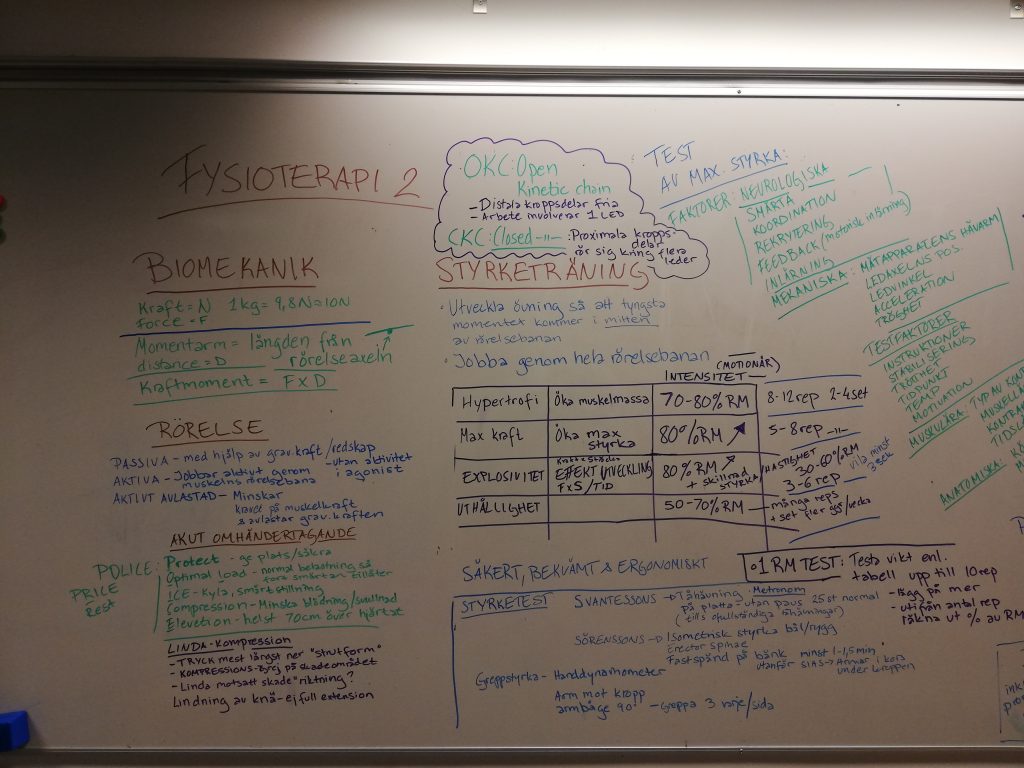 FYSIOTERAPI 2
BIOMEKANIK
Kraft = N 1kg = 9,8N ≈ 10N
force = F
Momentarm = längden från
distance = D rörelseaxeln
Kraftmoment = F x D
RÖRELSE
PASSIVA - med hjälp av grav.kraft/redskap
- utan aktivitet
i agonist
AKTIVA - Jobbar aktivt genom
muskelns rörelsebana
AKTIVT AVLASTAD - Minskar
kravet på muskelkraft
& avlastar grav.kraften
AKUT OMHÄNDERTAGANDE
POLICE: Protect - ge plats/säkra
PRICE
Rest
Optimal load - normal belastning så
fort smärtan tillåter
ICE - Kyla, smärtstillning
Compression - Minska blödning/svullnad
Elevetion - helst 70cm över hjärtat
LINDA - Kompression
- TRYCK mest längst ner "strutform"
- KOMPRESSIONS- på skadeområdet
- Linda motsatt skade"riktning?
Lindning av knä - ej full extension
OKC: Open
Kinetic chain
- Distala kroppsdelar fria
- Arbete involverar 1 LED
CKC: Closed -11- : Proximala kropps-
delar
rör sig kring flera
leder
STYRKETRÄNING
· Utveckla övning så att tyngsta
momentet kommer i mitten
av rörelsebanan
· Jobba genom hela rörelsebanan
INTENSITET (MOTIONÄR)
Hypertrofi Öka muskelmassa 70-80% RM 8-12 rep 2-4 set
Max kraft Öka max styrka 80% RM ↗ 5-8 rep -11-
EXPLOSIVITET EFFEKT UTVECKLING F x S / TID 80% RM ↗ + skillnad STYRKA/HASTIGHET 30-60% RM 3-6 rep vila minst 3 sek
UTHÅLLIGHET 50-70% RM - många reps
+ set fler ggr/vecka
SÄKERT, BEKVÄMT & ERGONOMISKT
STYRKETEST
SVANTESSONS → Tåhävning Metronom
på platta - utan paus 25 st normal
(tills ofullständiga tåhävningar)
SÖRENSSONS → Isometrisk styrka bål/rygg
Erector spinae
Fastspänd på bänk minst 1-1,5 min
utanför SIAS → Armar i kors
under kroppen
Greppstyrka - Handdynamometer
Arm mot kropp
armbåge 90° - Greppa 3 varje/sida
1 RM TEST: Testa vikt enl.
tabell upp till 10 rep
- lägg på mer
- utifrån antal rep
räkna ut % av RM
TEST
AV MAX. STYRKA:
FAKTORER: NEUROLOGISKA
SMÄRTA
KOORDINATION
REKRYTERING
FEEDBACK (motorisk inlärning)
INLÄRNING
MEKANISKA: MÄTAPPARATENS HÄVARM
LEDAXELNS POS.
LEDVINKEL
ACCELERATION
TRÖGHET
TESTFAKTORER
INSTRUKTIONER
STABILISERING
TRÖTTHET
TIDPUNKT
TEMPO
MOTIVATION
MUSKULÄRA: TYP AV KONT
MUSKELL
KONTRA
TIDSL
ANATOMISKA: K